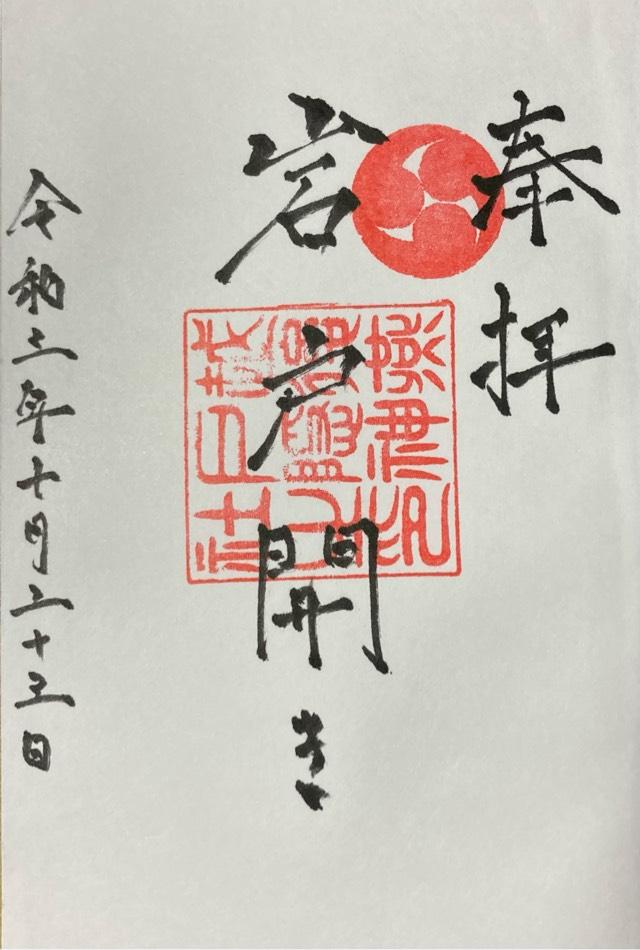 奉拝
岩戸開き
令和三年十月二十三日